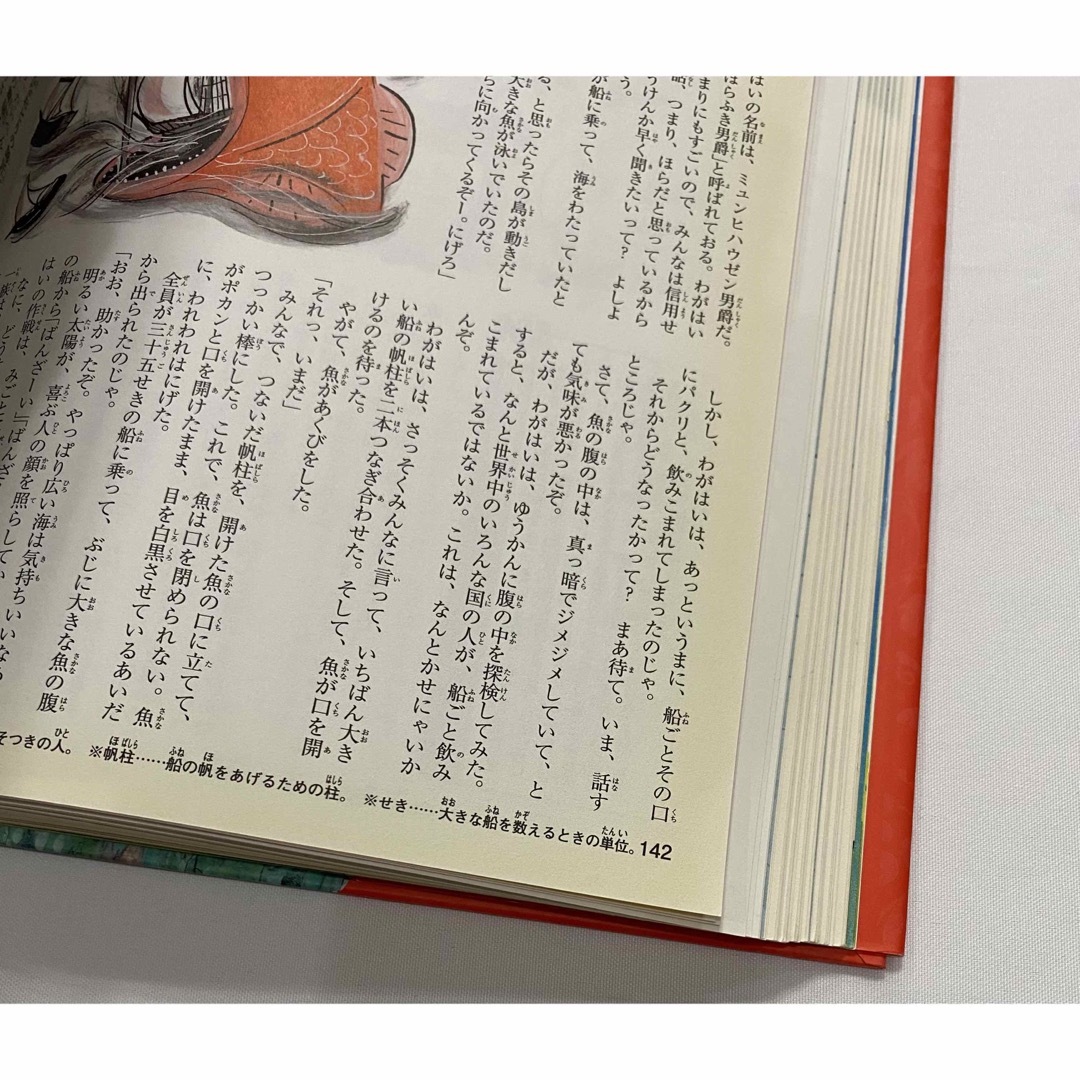 はいの名前は、ミュンヒハウゼン男爵だ。
はらふき男爵」と呼ばれておる。わがはい
まりにもすごいので、みんなは信用せ
話、つまり、ほらだと思っているから
うけんか早く聞きたいって？　よしよ
う。
が船に乗って、海をわたっていたと
る、と思ったらその島が動きだし
大きな魚が泳いでいたのだ。
らに向かってくるぞー。にげろ」
しかし、わがはいは、あっというまに、船ごとその口
にパクリと、飲みこまれてしまったのじゃ。
それからどうなったかって？　まあ待て。いま、話す
ところじゃ。
さて、魚の腹の中は、真っ暗でジメジメしていて、と
ても気味が悪かったぞ。
だが、わがはいは、ゆうかんに腹の中を探検してみた。
すると、なんと世界中のいろんな国の人が、船ごと飲み
こまれているではないか。これは、なんとかせにゃいか
んぞ。
わがはいは、さっそくみんなに言って、いちばん大き
い船の帆柱を二本つなぎ合わせた。そして、魚が口を開
けるのを待った。
やがて、魚があくびをした。
「それっ、いまだ」
みんなで、つないだ帆柱を、開けた魚の口に立てて、
つっかい棒にした。これで、魚は口を閉められない。魚
がポカンと口を開けたまま、目を白黒させているあいだ
に、われわれはにげた。
全員が三十五せきの船に乗って、ぶじに大きな魚の腹
から出られたのじゃ。
「おお、助かったぞ。やっぱり広い海は気持ちいいなら
明るい太陽が、喜ぶ人の顔を照らしてい
の船から「ばんざーい」「ばんざ
はいの作戦は、みごと
そつきの人。　※帆柱……船の帆をあげるための柱。　※せき……大きな船を数えるときの単位。
142